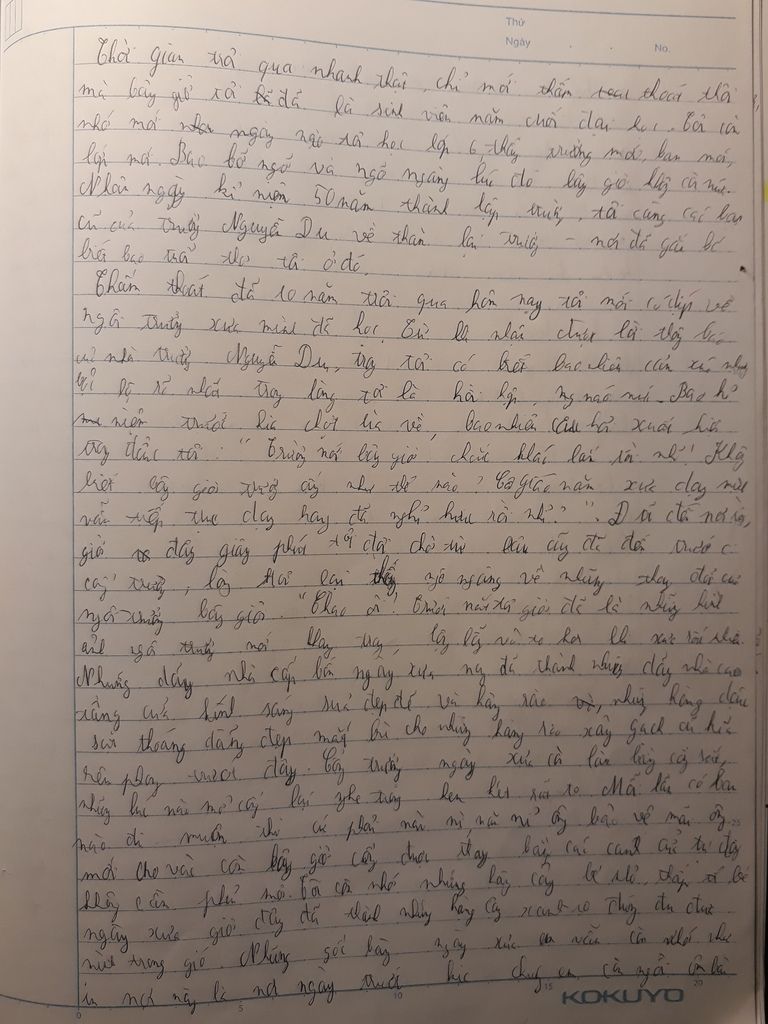 Thứ
Ngày . . No.
Thời gian trôi qua nhanh thật, chỉ mới thấm thoát thôi
mà bây giờ tôi đã là sinh viên năm cuối đại học. Tôi còn
nhớ mới ngày nào tôi học lớp 6, thầy trường mới, bạn mới,
lớp mới. Bao bỡ ngỡ và ngỡ ngàng lúc đó bây giờ không còn nữa.
Nhân ngày kỉ niệm 50 năm thành lập trường, tôi cùng các bạn
cũ của trường Nguyễn Du về thăm lại trường - nơi đã gắn bó
biết bao trẻ thơ tôi ở đó.
Thấm thoát đã 10 năm trôi qua hôm nay tôi mới có dịp về
ngôi trường xưa mình đã học. Từ lúc nhận được lời thông báo
của nhà trường Nguyễn Du, trong tôi có biết bao nhiêu cảm xúc nhưng
lộ rõ nhất trong lòng tôi là hồi hộp, mong nao nức. Bao kỉ
niệm trước kia chợt ùa về, bao nhiêu câu hỏi xuất hiện
trong đầu tôi: "Trường mới bây giờ chắc khác lắm rồi nhỉ! Không
biết bây giờ trường như thế nào? Cô giáo năm xưa dạy mình
vẫn tiếp tục dạy hay đã nghỉ hưu rồi nhỉ?".
giờ đây giây phút tôi chờ đã đến trước
cổng trường, lòng tôi lại ngỡ ngàng về những thay đổi của
ngôi trường bây giờ. "Chao ôi! Trước mắt tôi giờ đã là những hình
ảnh ngôi trường mới khang trang, lộng lẫy và to hơn khi xưa rất nhiều.
Những dãy nhà cấp bốn ngày xưa nay đã thành những dãy nhà cao
tầng cửa kính sang sủa đẹp đẽ và hàng rào, những hàng dào
sắt thoáng đãng đẹp mắt bù cho những hàng rào xây gạch cũ kĩ
rêu phong trước đây. Cổng trường ngày xưa còn làm bằng cây sắt,
những lúc nào mở cổng lại nghe tiếng ken két rất to. Mỗi lần có bạn
nào đi muộn thì cứ phải năn nỉ, năn nỉ ông bảo vệ mãi ông
mới cho vào còn bây giờ cổng được thay bằng các cánh cửa tự động
không cần phải mở. Tôi còn nhớ những hàng cây bé nhỏ thấp bé
ngày xưa giờ đây đã thành những hàng cây xanh to chúng đu đưa
mình trong gió. Những gốc bàng ngày xưa em vẫn còn nhớ như
in nơi này là nơi ngày trước lúc chúng em còn ngồi ôn bài
0 5 10 15 20 25
KOKUYO